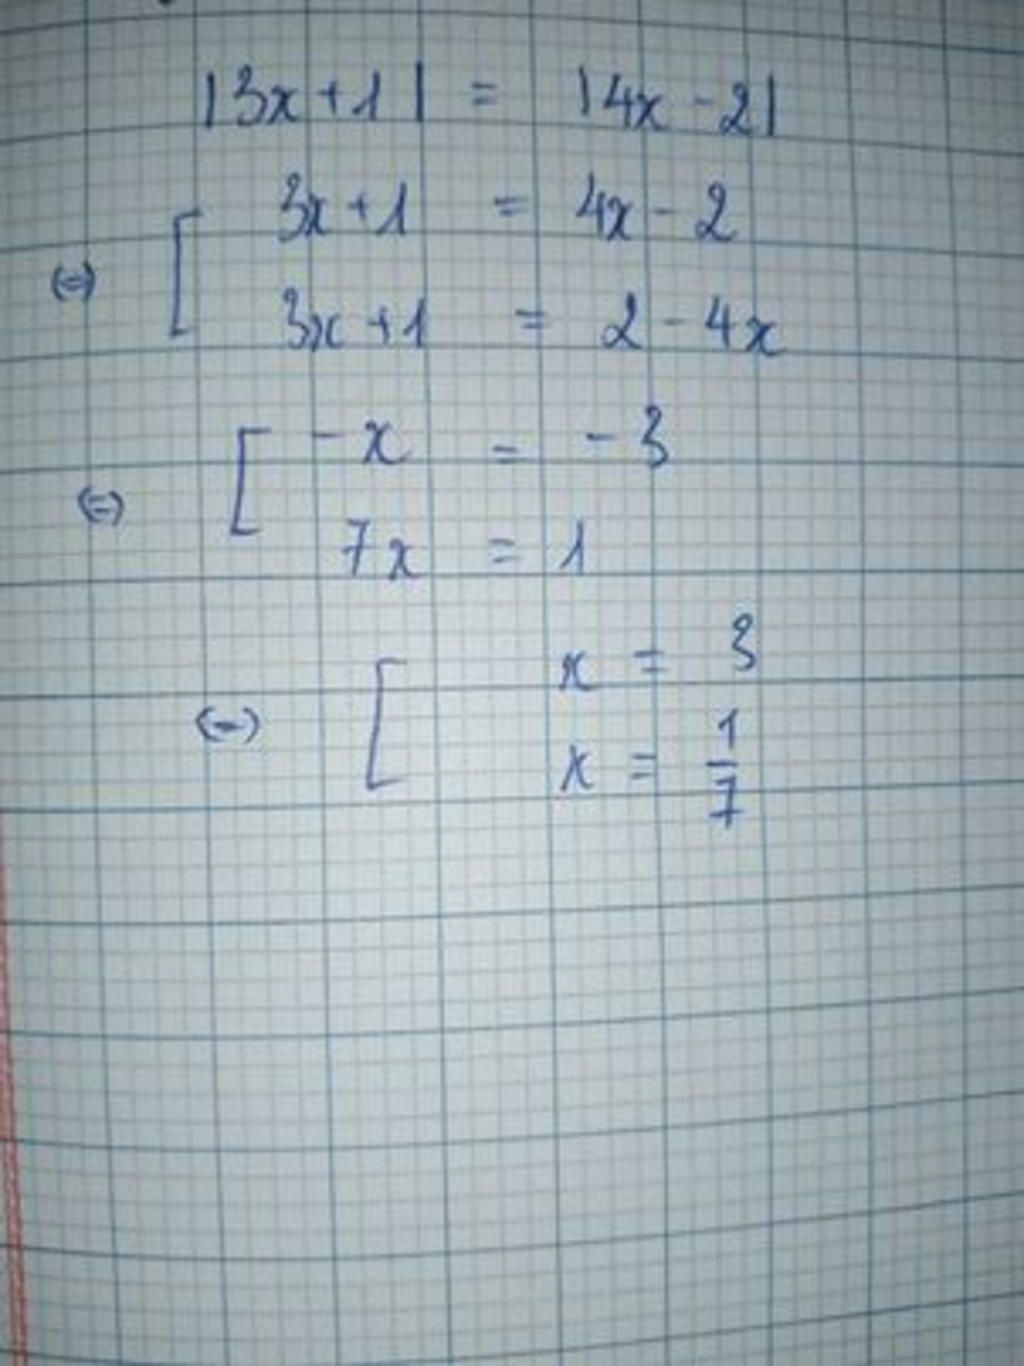 |3x+1| = |4x-2|
(=) [ 3x+1 = 4x-2
3x+1 = 2-4x
(=) [ -x = -3
7x = 1
(=) [ x = 3
x = 1/7